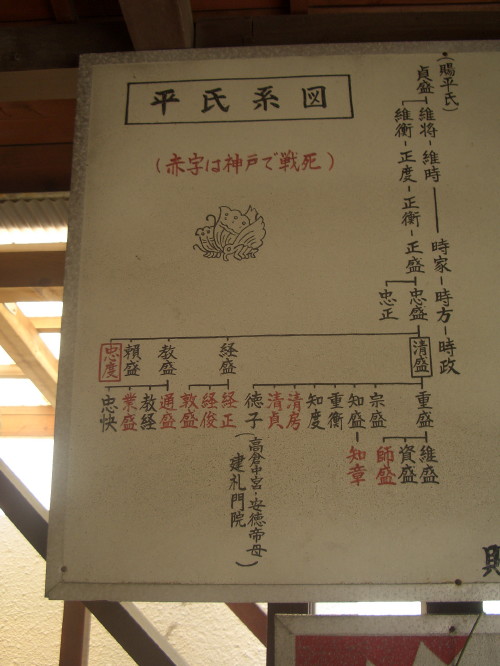 平氏系図
（赤字は神戸で戦死）
（賜平氏）
貞盛
維将-維時
時家-時方-時政
維衡-正度-正衡-正盛
忠盛
忠正
清盛
経盛
教盛
頼盛
忠度
重盛
宗盛
知盛
重衡
知度
清房
清貞
徳子（高倉中宮・安徳帝母 建礼門院）
経正
経俊
敦盛
通盛
教経
業盛
忠快
維盛
資盛
師盛
知章